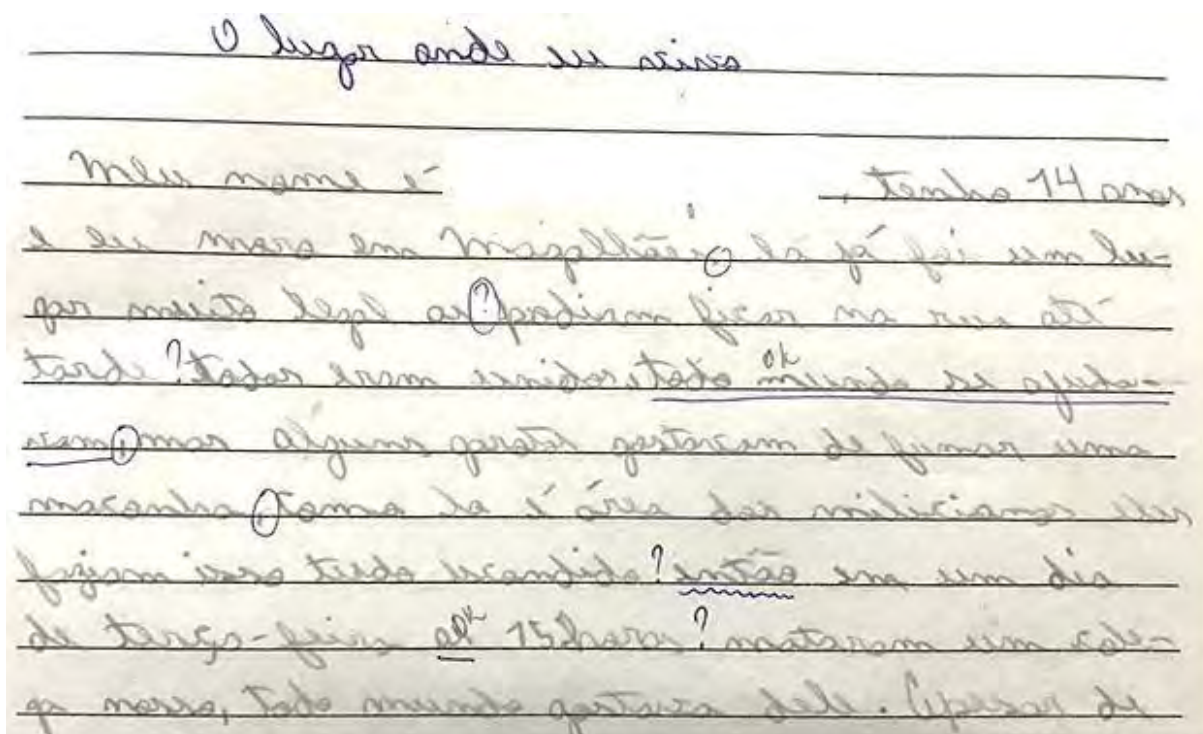 O lugar onde eu vivo
Meu nome é , tenho 14 anos
e eu moro em Magalhães, lá já foi um lu-
gar muito legal ? podiam ficar na rua até
tarde ? todos eram unidos, todo ok mundo se ajuda-
vam, mas alguns garotos gostavam de fumar uma
maconha, como lá é área dos milicianos eles
faziam isso tudo escondido ? então em um dia
de terça-feira ok 15 horas ? mataram um cole-
ga nosso, todo mundo gostava dele. Apesar de